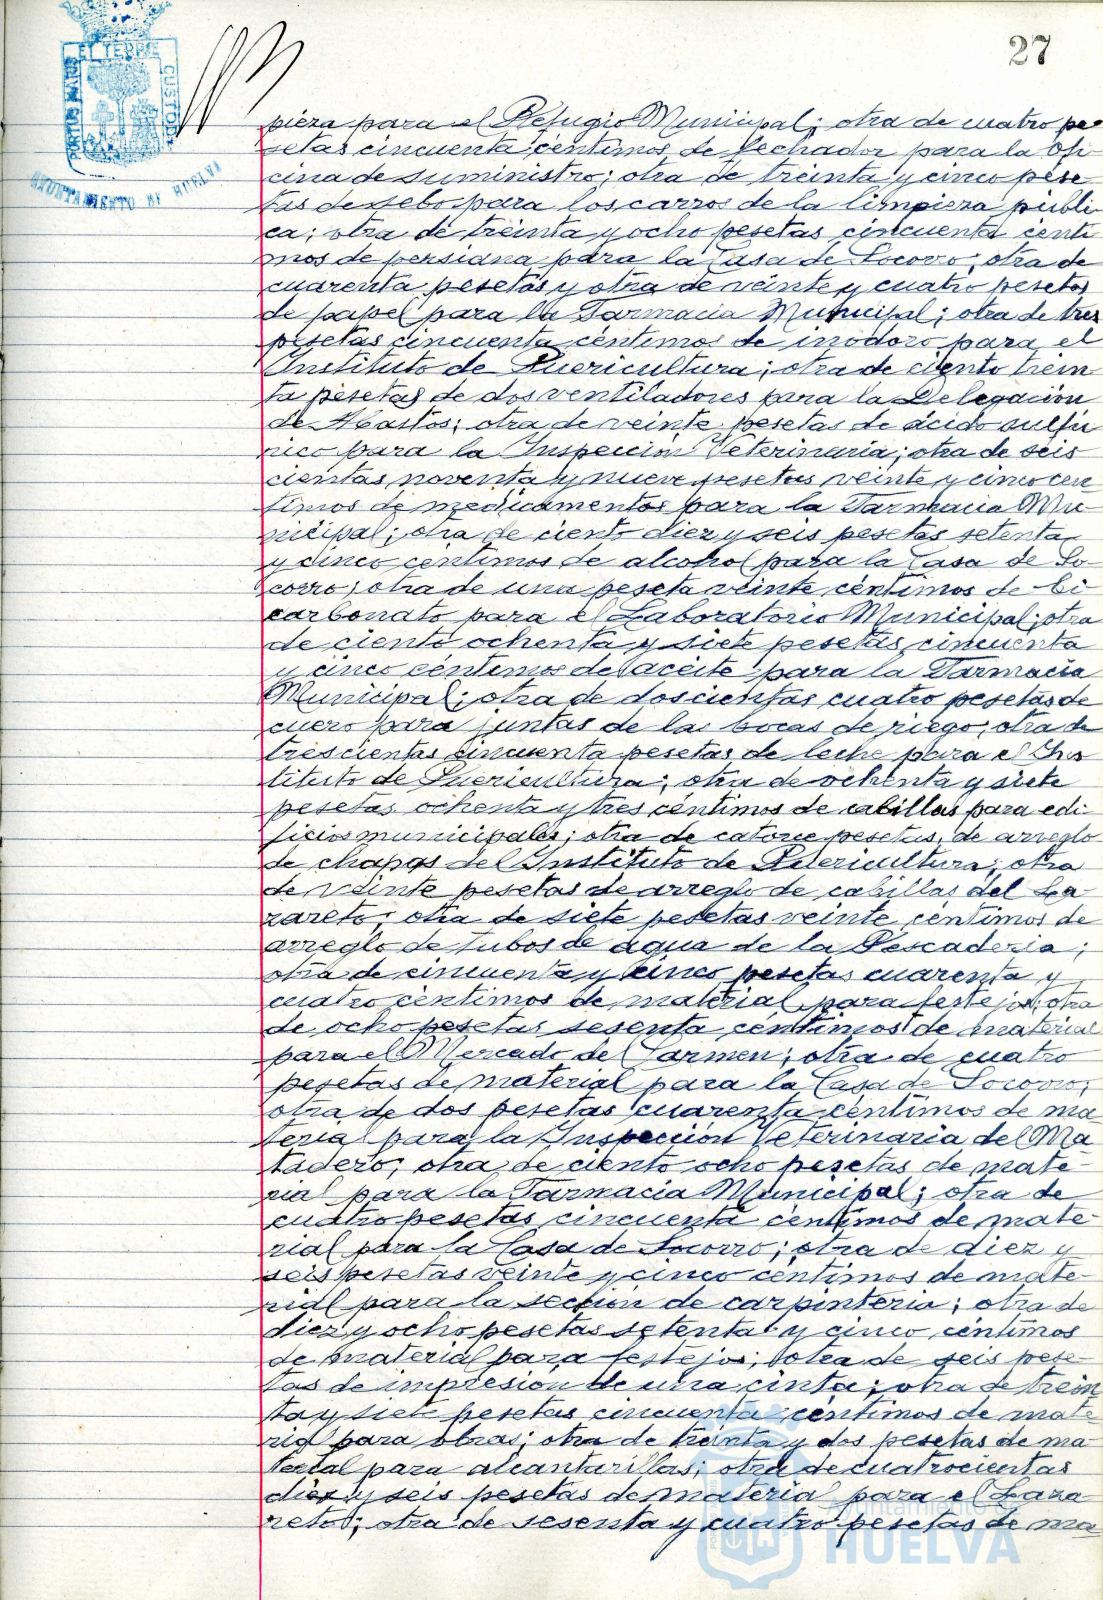 27
PORTUS MARIS ET TERRE CUSTODIA
AYUNTAMIENTO DE HUELVA
pieza para el Refugio Municipal; otra de cuatro pe
setas cincuenta céntimos de flechador para la Ofi
cina de suministro; otra de treinta y cinco pese
tas de sebo para los carros de la limpieza públi
ca; otra de treinta y ocho pesetas cincuenta cénti
mos de persiana para la Casa de Socorro; otra de
cuarenta pesetas y otra de veinte y cuatro pesetas
de papel para la Farmacia Municipal; otra de tres
pesetas cincuenta céntimos de inodoro para el
Instituto de Puericultura; otra de ciento trein
ta pesetas de dos ventiladores para la Delegación
de Abastos; otra de veinte pesetas de ácido sulfú
rico para la Inspección Veterinaria; otra de seis
cientas noventa y nueve pesetas veinte y cinco cén
timos de medicamentos para la Farmacia Mu-
nicipal; otra de ciento diez y seis pesetas setenta
y cinco céntimos de alcohol para la Casa de So-
corro; otra de una peseta veinte céntimos de bi
carbonato para el Laboratorio Municipal; otra
de ciento ochenta y siete pesetas cincuenta
y cinco céntimos de aceite para la Farmacia
Municipal; otra de doscientas cuatro pesetas de
cuero para juntas de las bocas de riego; otra de
trescientas cincuenta pesetas de leche para el Ins
tituto de Puericultura; otra de ochenta y siete
pesetas ochenta y tres céntimos de cabillas para edi-
ficios municipales; otra de catorce pesetas de arreglo
de chapas del Instituto de Puericultura; otra
de veinte pesetas de arreglo de cabillas del La-
zareto; otra de siete pesetas veinte céntimos de
arreglo de tubos de agua de la Pescaderia;
otra de cincuenta y cinco pesetas cuarenta y
cuatro céntimos de material para festejos; otra
de ocho pesetas sesenta céntimos de material
para el Mercado del Carmen; otra de cuatro
pesetas de material para la Casa de Socorro;
otra de dos pesetas cuarenta céntimos de ma
terial para la Inspección Veterinaria del Ma-
tadero; otra de ciento ocho pesetas de mate-
rial para la Farmacia Municipal; otra de
cuatro pesetas cincuenta céntimos de mate-
rial para la Casa de Socorro; otra de diez y
seis pesetas veinte y cinco céntimos de mate-
rial para la sección de carpinteria; otra de
diez y ocho pesetas setenta y cinco céntimos
de material para festejos; otra de seis pese-
tas de impresión de una cinta; otra de trein
ta y siete pesetas cincuenta céntimos de mate
rial para obras; otra de treinta y dos pesetas de ma-
terial para alcantarillas; otra de cuatrocientas
diez y seis pesetas de material para el Laza
reto; otra de sesenta y cuatro pesetas de ma
Ayuntamiento de
HUELVA